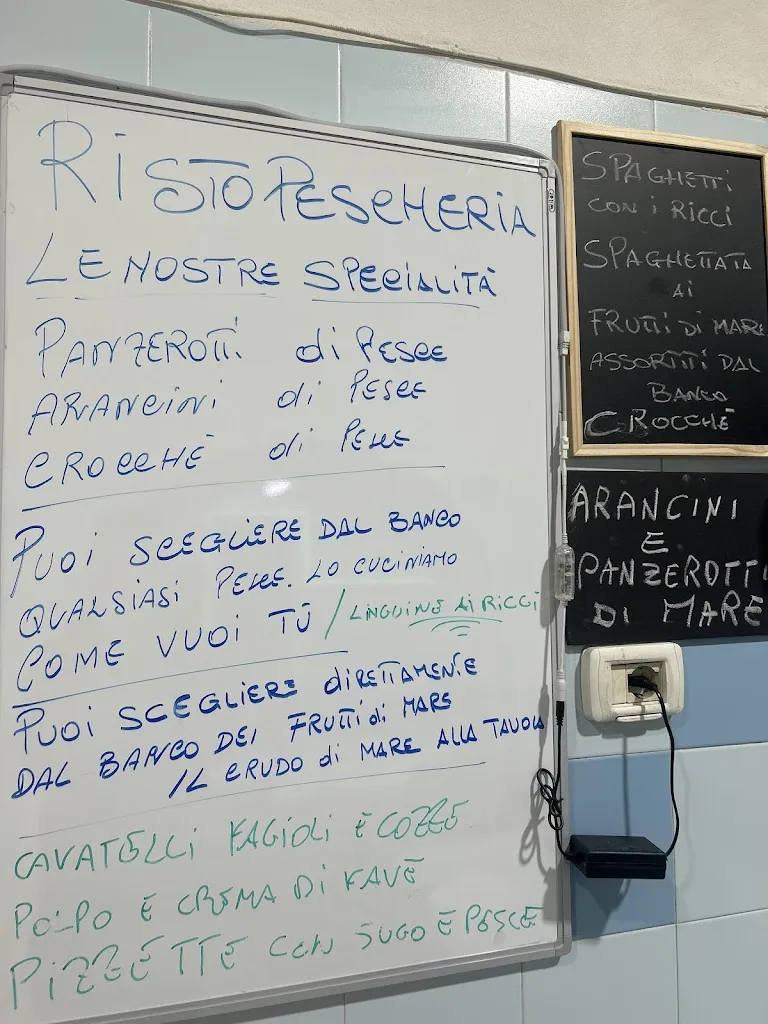 RISTOPESCHERIA
LE NOSTRE SPECIALITÀ
PANZEROTTI di PESCE
ARANCINI di PESCE
CROCCHÈ di PESCE
PUOI SCEGLIERE DAL BANCO
QUALSIASI PESCE. LO CUCINIAMO
COME VUOI TU / LINGUINE AI RICCI
PUOI SCEGLIERE DIRETTAMENTE
DAL BANCO DEI FRUTTI di MARE
IL CRUDO di MARE ALLA TAVOLA
CAVATELLI FAGIOLI E COZZE
POLPO E CREMA DI FAVE
PIZZETTE CON SUGO E PESCE
SPAGHETTI
CON I RICCI
SPAGHETTATA
AI
FRUTTI DI MARE
ASSORTITI DAL
BANCO
CROCCHÈ
ARANCINI
E
PANZEROTTI
DI MARE